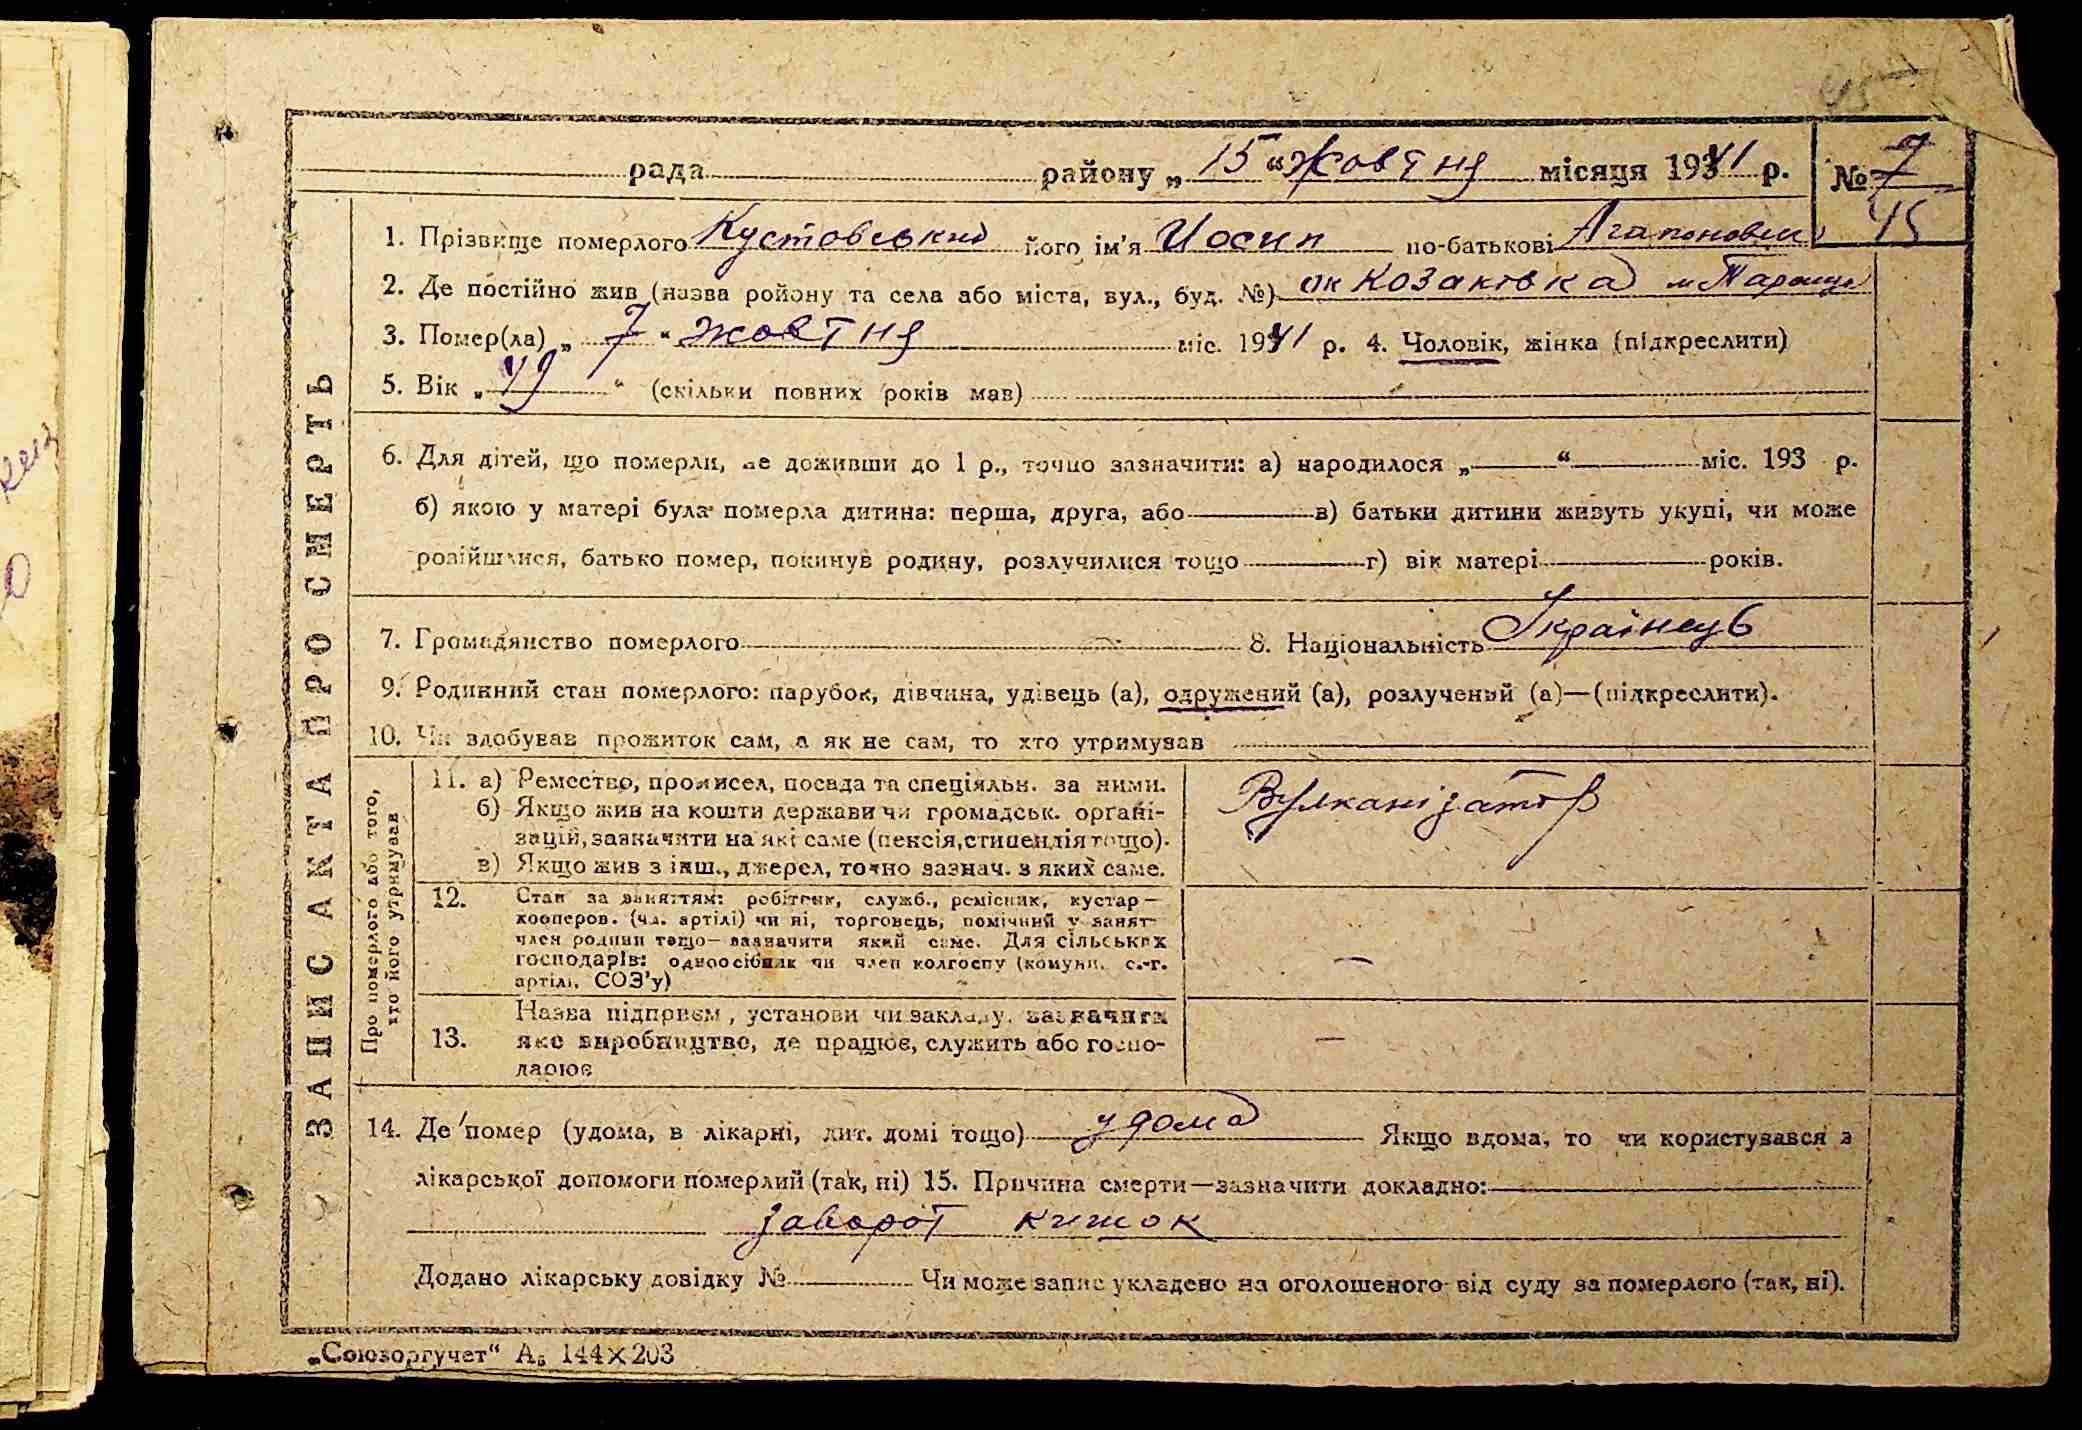 рада районУ „ 15 “ жовтня місяця 1941 р. № 7
45
1. Прізвище померлого Кустовський його ім'я Йосип по-батькові Агапонович
2. Де постійно жив (назва ройону та села або міста, вул., буд. №) ок Козаковка м Тараща
3. Помер(ла) „ 7 “ жовтня міс. 1941 р. 4. Чоловік, жінка (підкреслити)
5. Вік „ 49 “ (скільки повних років мав)
6. Для дітей, що померли, не доживши до 1 р., точно зазначити: а) народилося „ “ міс. 193 р.
б) якою у матері була померла дитина: перша, друга, або в) батьки дитини живуть укупі, чи може
розійшлися, батько помер, покинув родину, розлучилися тощо г) вік матері років.
7. Громадянство померлого 8. Національність Українець
9. Родинний стан померлого: парубок, дівчина, удівець (а), одружений (а), розлучений (а)—(підкреслити).
10. Чи здобував прожиток сам, а як не сам, то хто утримував
ЗАПИС АКТА ПРО СМЕРТЬ
Про померлого або того,
хто його утримував
11. а) Ремество, промисел, посада та спеціяльн. за ними. Вулканізатор
б) Якщо жив на кошти держави чи громадськ. органі-
зацій, зазначити на які саме (пенсія, стипендія тощо).
в) Якщо жив з інш., джерел, точно зазнач. з яких саме.
12. Стан за заняттям: робітник, служб., ремісник, кустар —
кооперов. (чл. артілі) чи ні, торговець, помічний у занят-
член родини тощо— зазначити який саме. Для сільських
господарів: одноосібник чи член колгоспу (комуни, с.-г. —
артілі, СОЗ'у)
Назва підприєм, установи чи закладу, зазначити
13. яке виробництво, де працює, служить або госпо- —
дарює
14. Де помер (удома, в лікарні, дит. домі тощо) удома Якщо вдома, то чи користувався з
лікарської допомоги померлий (так, ні) 15. Причина смерти—зазначити докладно:
заворот кишок
Додано лікарську довідку № Чи може запис укладено на оголошеного від суду за померлого (так, ні).
„Союзоргучет“ А₅ 144×203